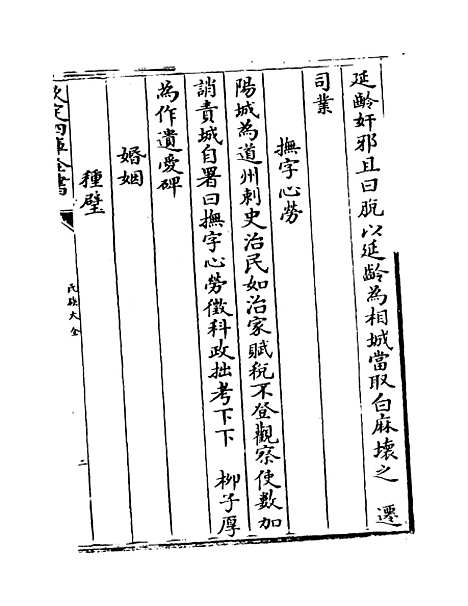 延齡奸邪且曰脫以延齡為相城當取白麻壞之　遷
司業
撫字心勞
陽城為道州刺史治民如治家賦稅不登觀察使數加
誚責城自署曰撫字心勞徵科政拙考下下　柳子厚
為作遺愛碑
婚姻
種璧
欽定四庫全書
氏族大全
二